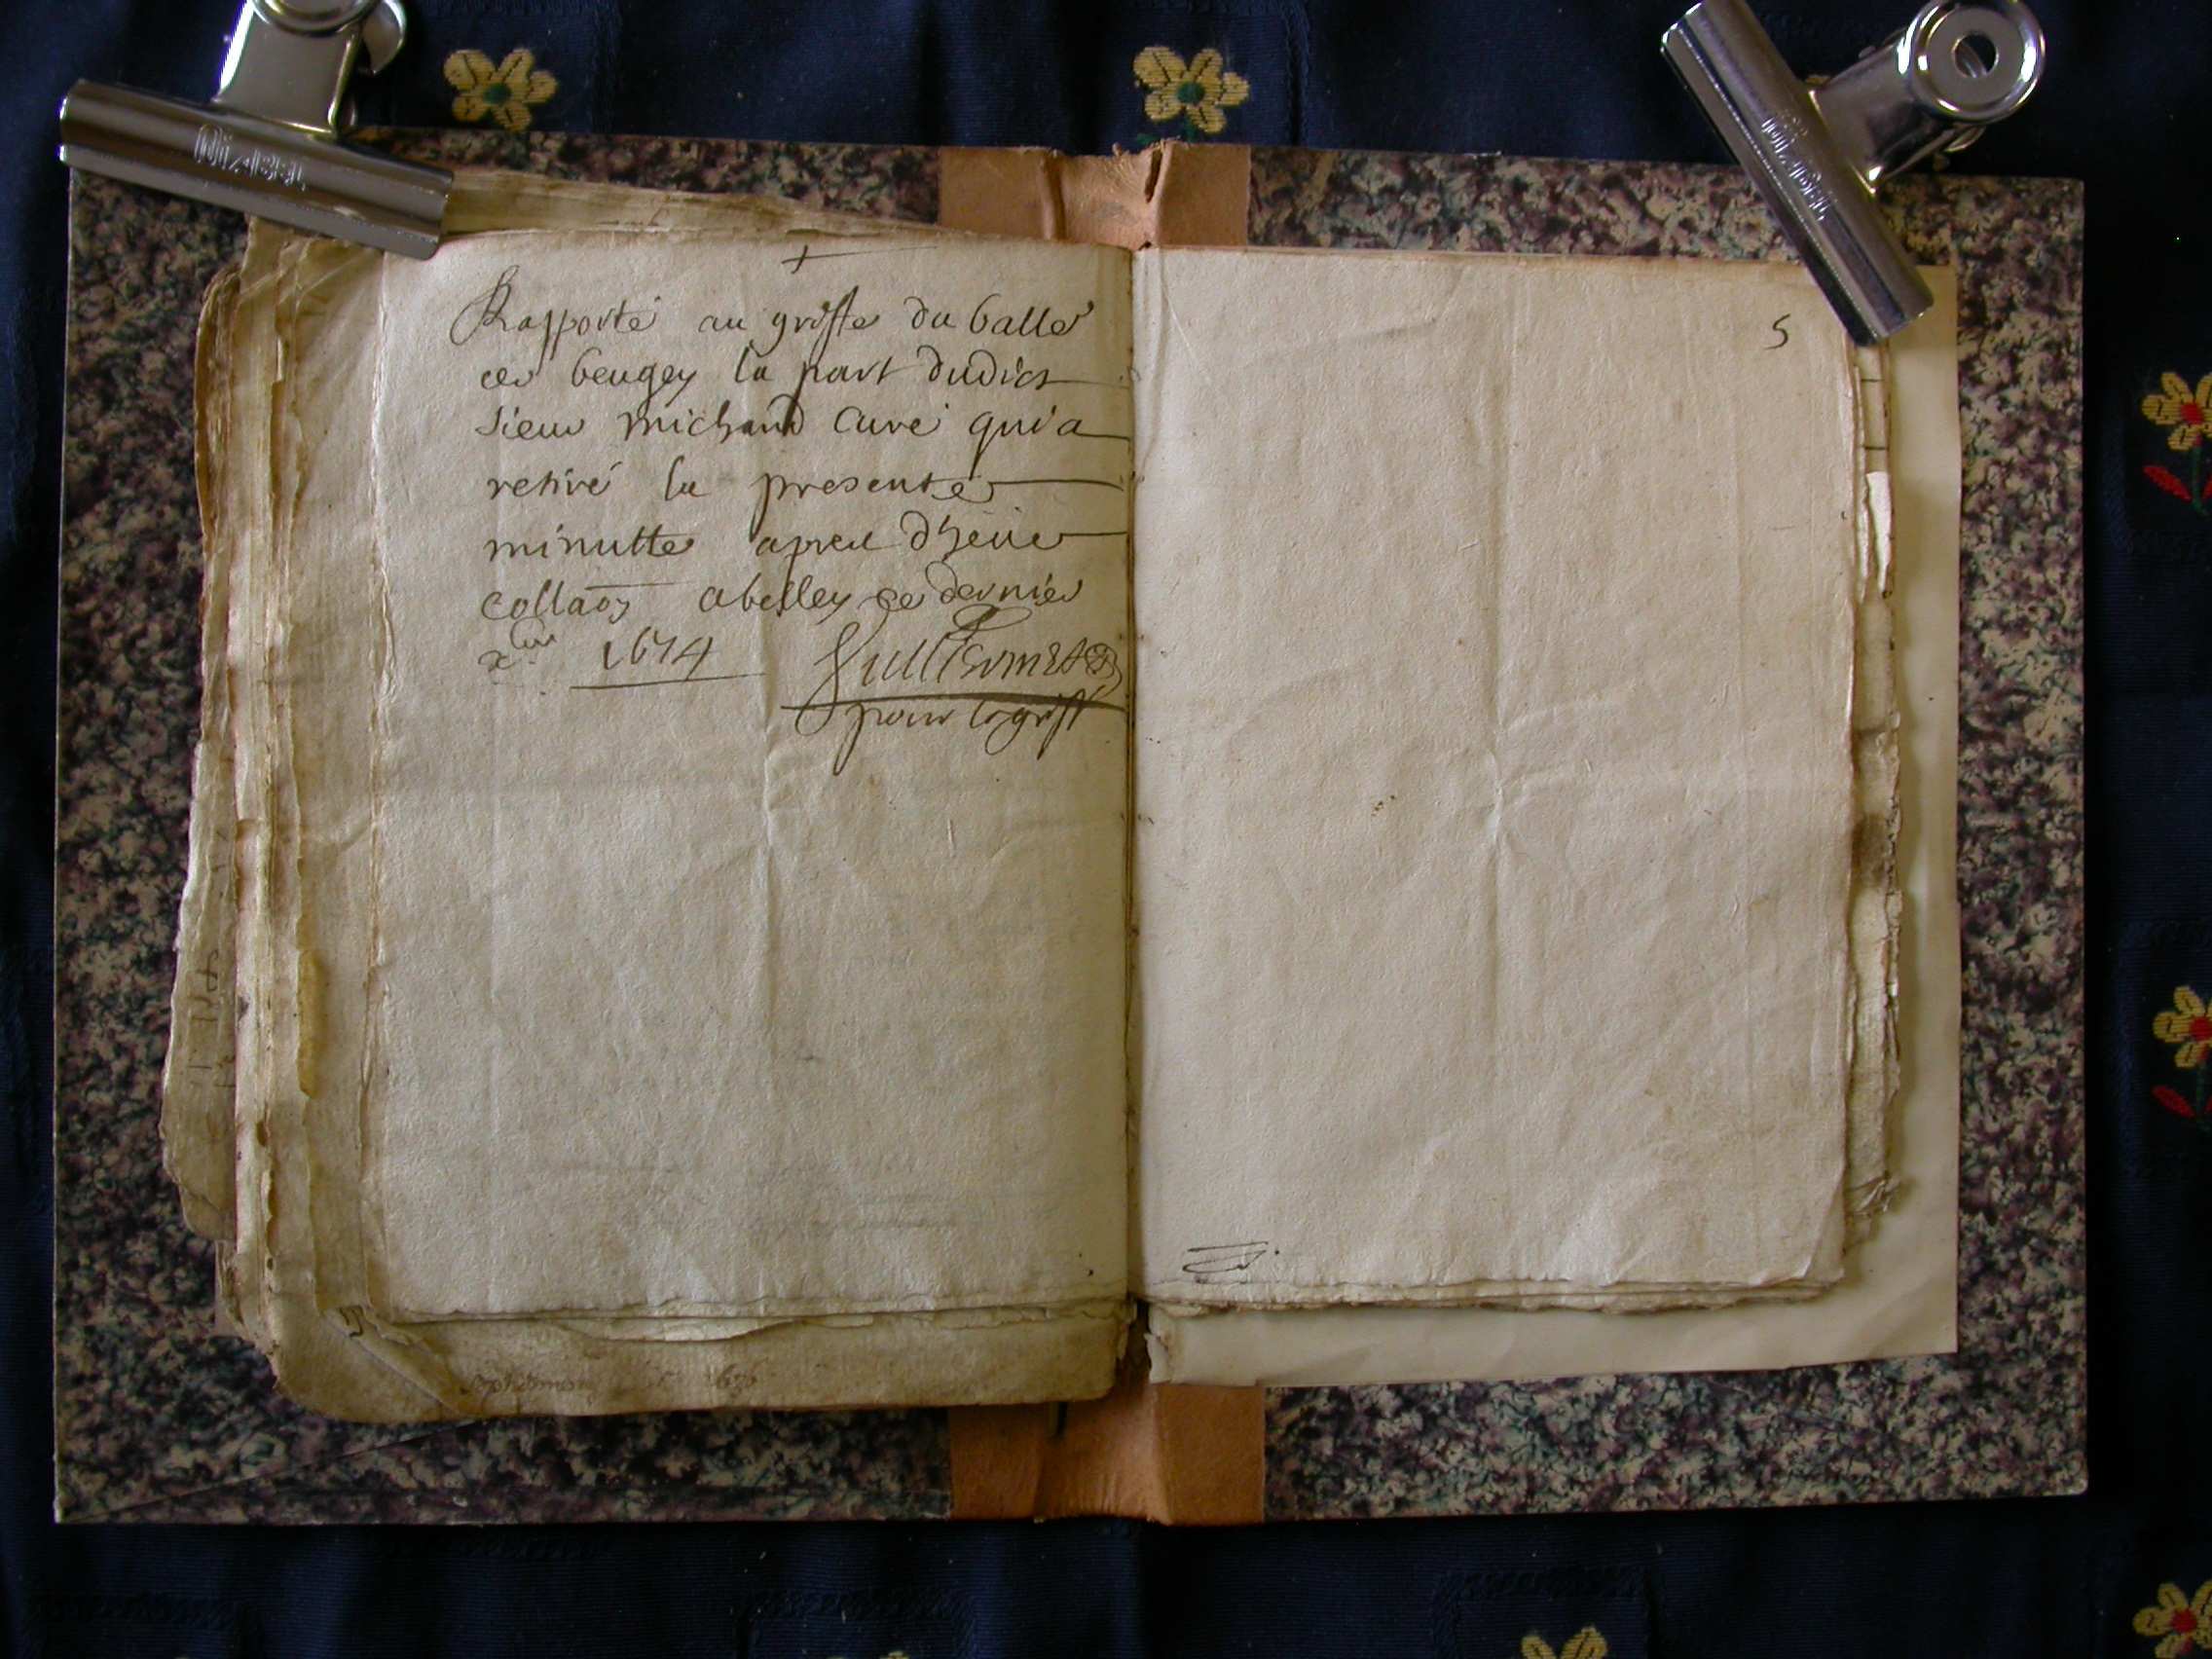 Rapporté au greffe du balle
de beugey la part dudict
sieur michaud Curé qui a
retiré la presente
minutte apres dheue
collaon abelley ce dernier
xbre 1674
pour le greff
5
1676